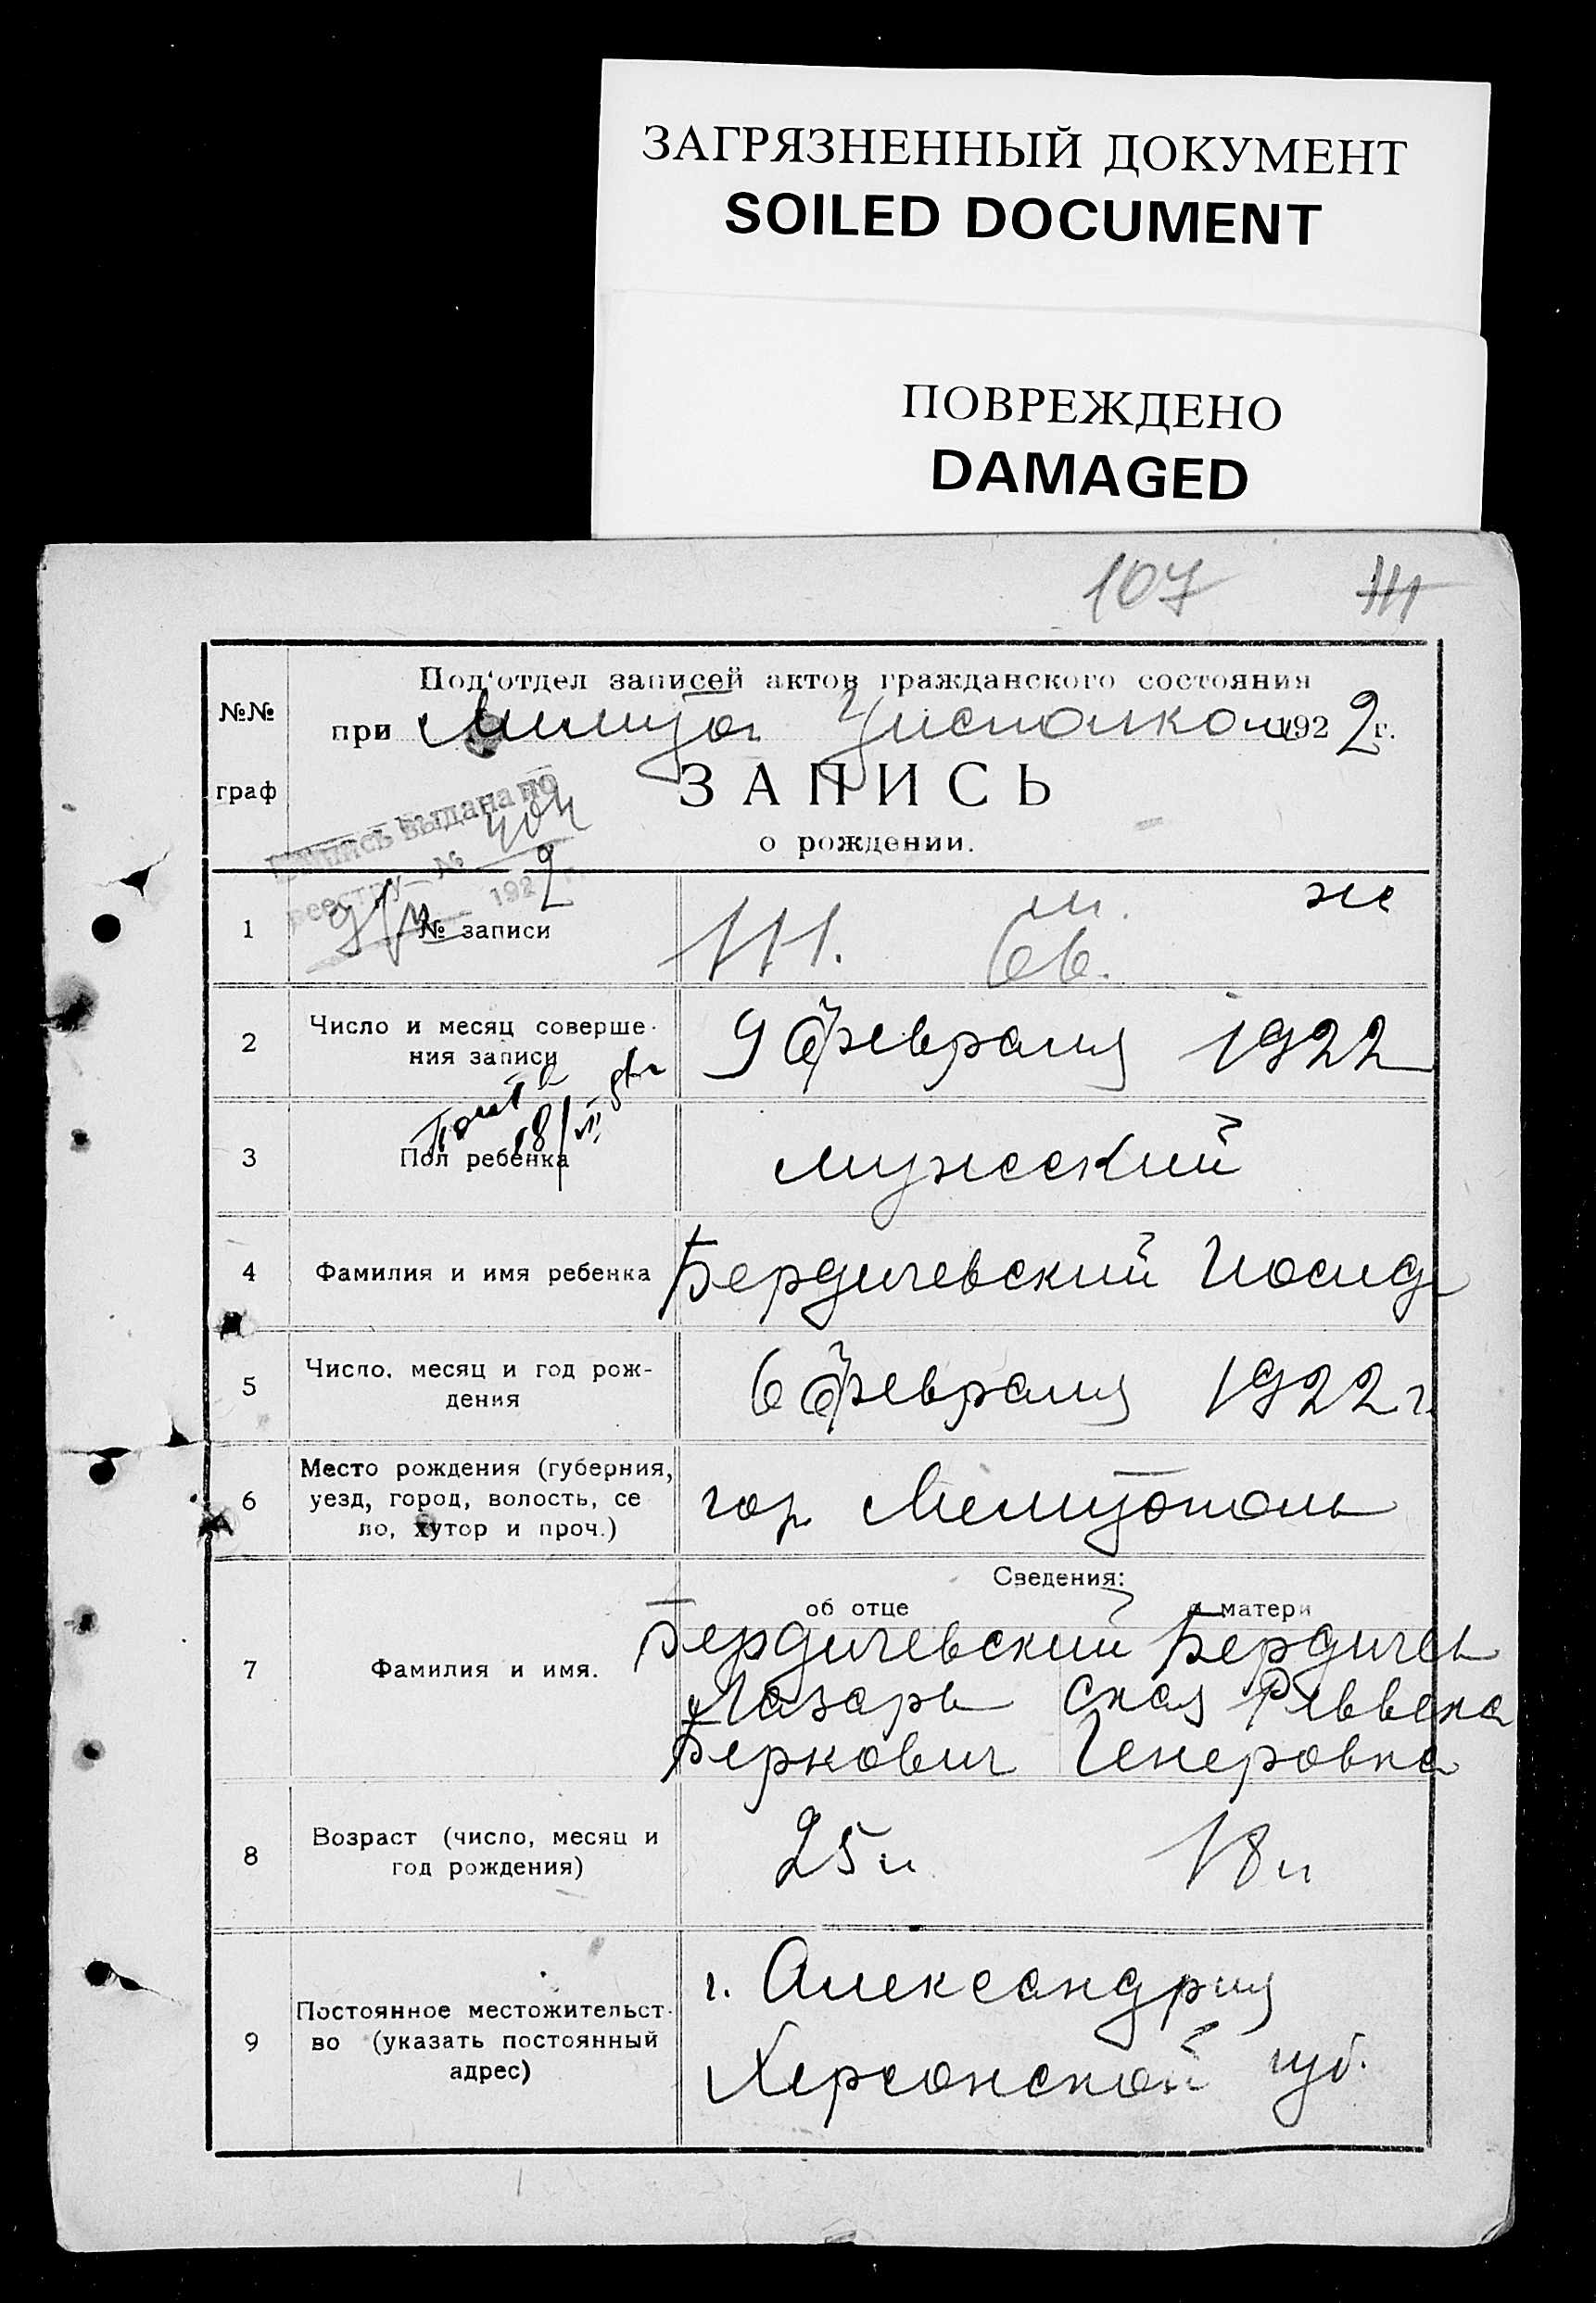 ЗАГРЯЗНЕННЫЙ ДОКУМЕНТ
SOILED DOCUMENT
ПОВРЕЖДЕНО
DAMAGED
107 111
№№ граф
Под'отдел записей актов гражданского состояния
при Исполком 192 2 г.
ЗАПИСЬ
о рождении.
выдана по
реестру № 404
9/II 192 2
1 № записи 111. м. ж
66.
2 Число и месяц соверше-
ния записи
9 февраля 1922
18/VI
3 Пол ребенка мужеский
4 Фамилия и имя ребенка Бердичевский Иосиф
5 Число, месяц и год рож-
дения
6 февраля 1922 г
6 Место рождения (губерния,
уезд, город, волость, се
ло, хутор и проч.)
гор Мелитополь
Сведения:
об отце о матери
7 Фамилия и имя.
Бердичевский Бердичев
Лазарь ская Реввека
Беркович
8 Возраст (число, месяц и
год рождения)
25 л 18 л
9 Постоянное местожительст-
во (указать постоянный
адрес)
г. Александрия
Херсонской губ.